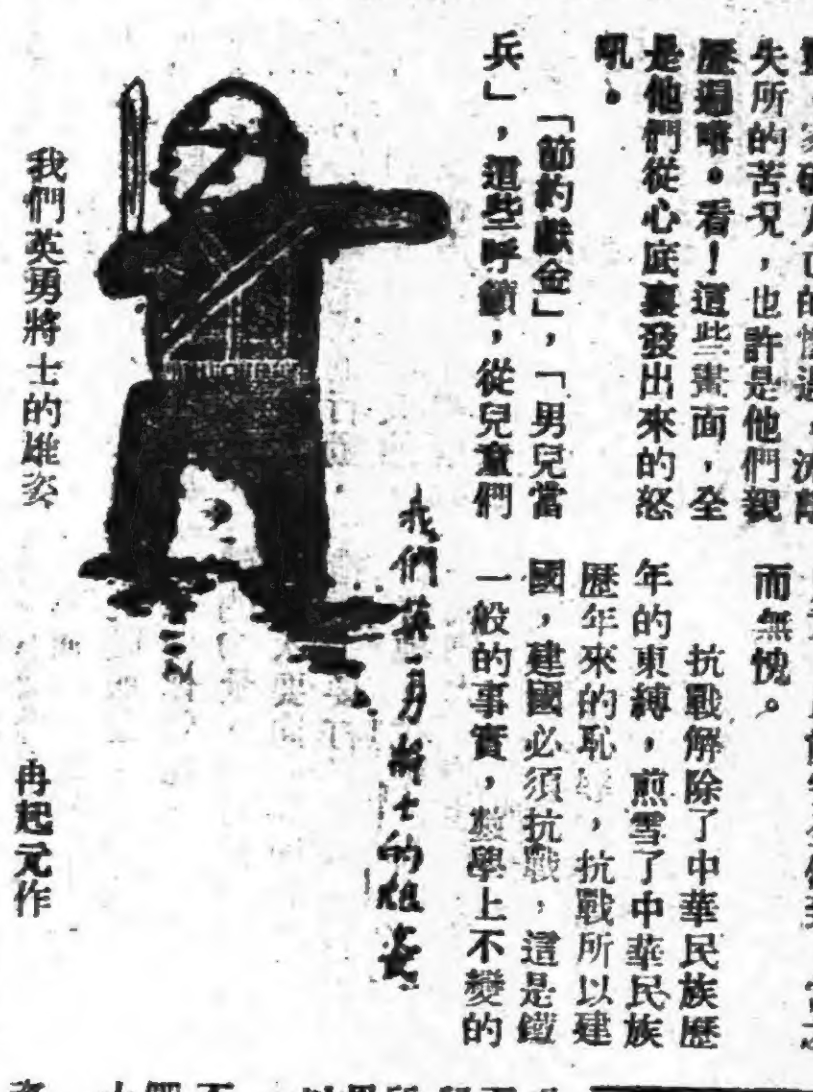 家破人亡的慘遇，流離
失所的苦況，也許是他們親
歷過。看！這些畫面，全
是他們從心底裏發出來的怒
吼。
「節約獻金」，「男兒當
兵」，這些呼籲，從兒童們
而無愧。
抗戰解除了中華民族歷
年的束縛，煎雪了中華民族
歷年來的恥，抗戰所以建
國，建國必須抗戰，這是鐵
一般的事實，數學上不變的
我們英勇將士的雄姿
我們英勇將士的雄姿
冉起元作